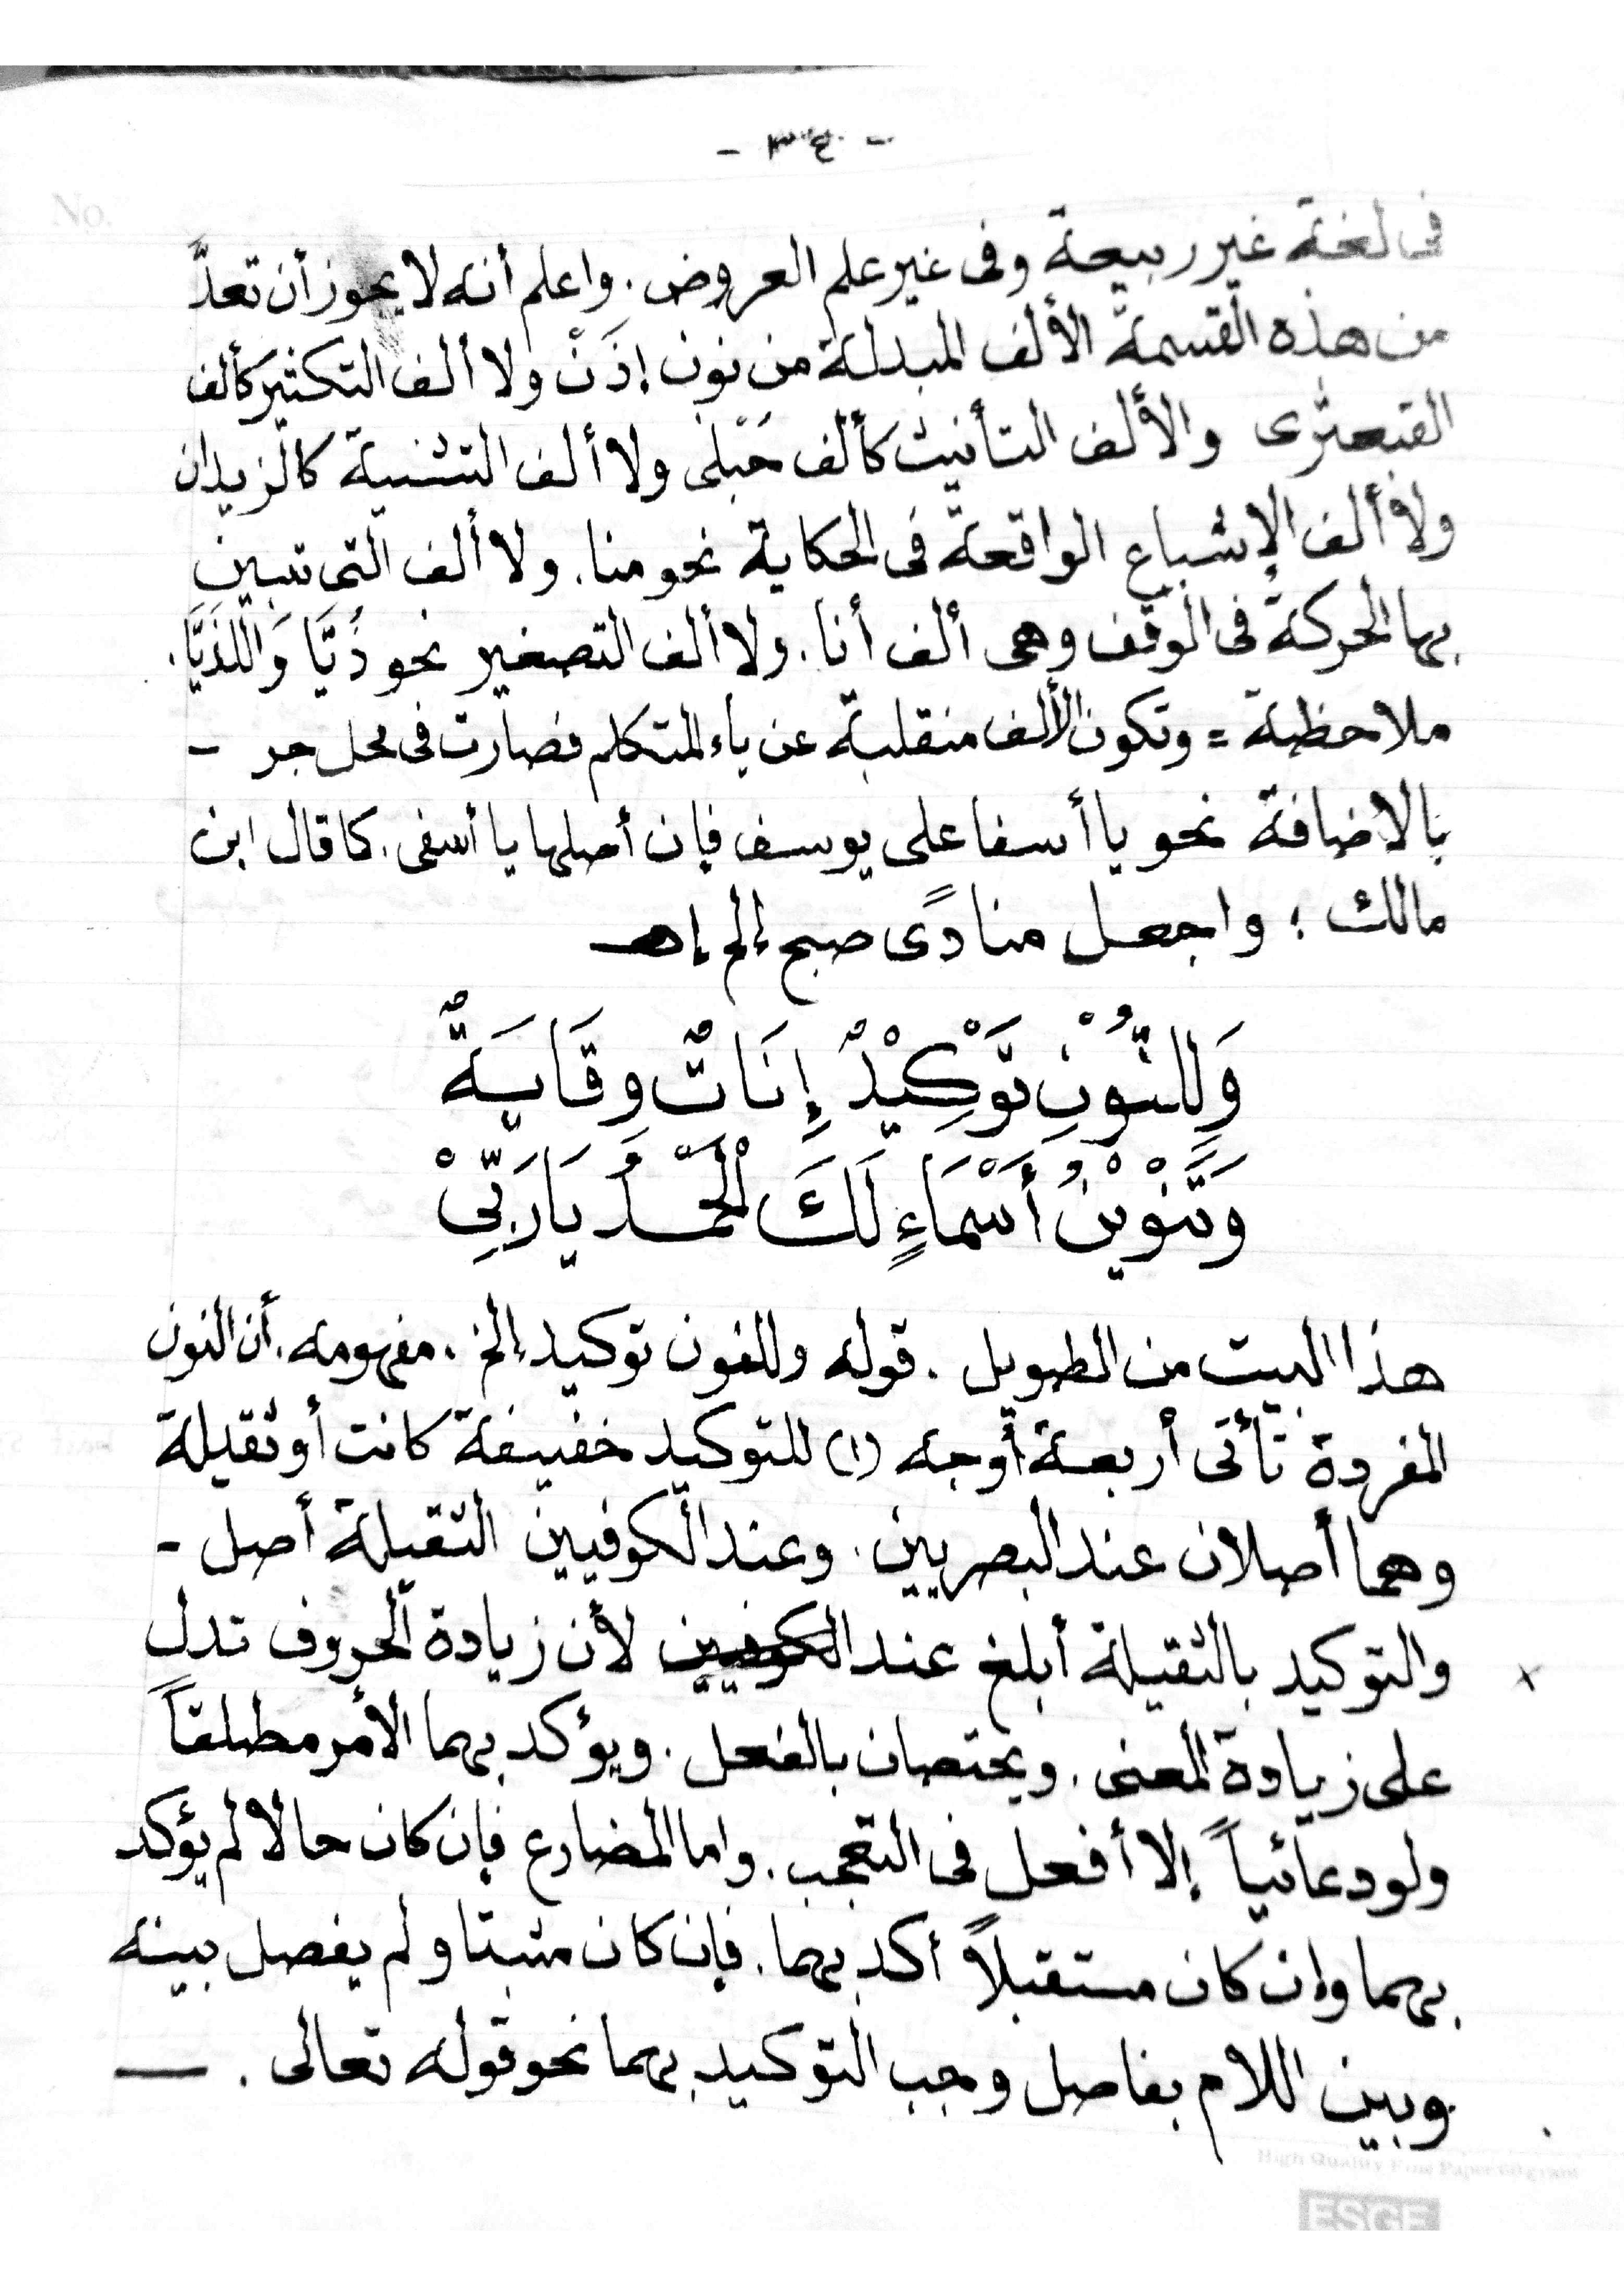 No.
في لغة غير ربيعة وفى غير علم العروض. واعلم أنه لا يجوز أن تعدَّ
من هذه القسمة الألف المبدلة من نون إذَنْ ولا ألف التكثير كألف
القبعثرى والألف التأنيث كألف حُبْلى ولا ألف التثنية كالزيدان
ولا ألف الإشباع الواقعة فى الحكاية نحو منا. ولا ألف التى تبين
بها الحركة فى الوقف وهى ألف أنا. ولا ألف التصغير نحو ذُيَّا وَاللَّذَيَّا.
ملاحظة = وتكون الألف منقلبة عن ياء المتكلم فصارت فى محل جر -
بالاضافة نحو يا أسفا على يوسف فإن أصلها يا أسفى. كما قال ابن
مالك ؛ واجعل منادًى صح إلخ إهـ
وَلِلنُّوْنِ تَوْكِيْدٌ إِنَاثٌ وِقَايَةٌ
وَتَنْوِيْنُ أَسْمَاءٍ لَكَ الْحَمْدُ يَارَبِّيْ
هذا البيت من الطويل. قوله وللنون توكيد إلخ. مفهومه. أن النون
المفردة تأتى أربعة أوجه (١) للتوكيد خفيفة كانت أو ثقيلة
وهما أصلان عند البصريين. وعند الكوفيين الثقيلة أصل -
والتوكيد بالثقيلة أبلغ عند الكوفيين لأن زيادة الحروف تدل x
على زيادة المعنى. ويختصان بالفعل. ويؤكد بهما الأمر مطلقاً
ولو دعائياً إلا أفعل فى التعجب. واما المضارع فإن كان حالا لم يؤكد
بهما وإن كان مستقبلاً أكد بهما. فإن كان مثبتا ولم يفصل بينه
وبين اللام بفاصل وجب التوكيد بهما نحو قوله تعالى. —
High Quality Fine Paper 60 gram
ESGE